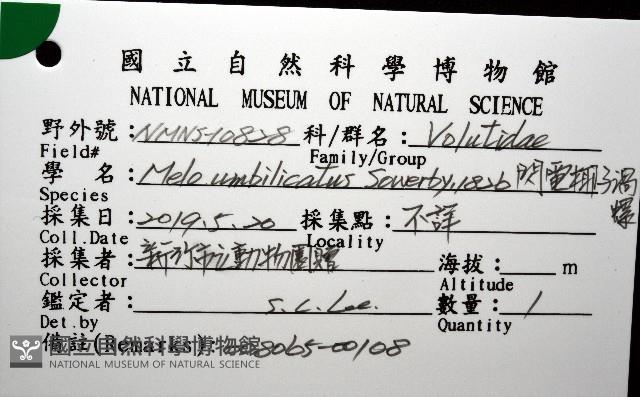 國立自然科學博物館
NATIONAL MUSEUM OF NATURAL SCIENCE
野外號：NMNS-10828 科/群名：Volutidae
Field# Family/Group
學 名：Melo umbilicatus Sowerby, 1826 閃電椰子渦螺
Species
採集日：2019.5.20 採集點：不詳
Coll.Date Locality
採集者：新竹市立動物園贈 海拔：　m
Collector Altitude
鑑定者：S.C.Lee. 數量：1
Det.by Quantity
備註(Remarks)：8065-00108
國立自然科學博物館
NATIONAL MUSEUM OF NATURAL SCIENCE